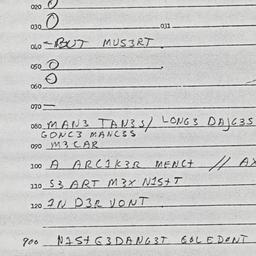 020 O
030 O 031
040 - BUT MUS3RT
050 O
O
060
070 —
080 MAN3 TAN3S/ LONG3 DAJG3S
GONC3 MANC3S
090 M3 CAR
100 A ARC1K3R MENG+ // AX
110 S3 ART M3X N1S+T
120 IN D3R VONT
900 N1S+ G3DANG3T GOLEDONT